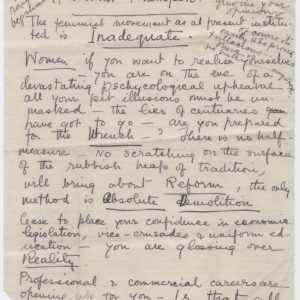 give me your
opinion
The feminist movement as at present institu-
ted is Inadequate.
Women if you want to realise yourselves
you are on the eve of a
devastating pschycological upheaval
all your pet illusions must be un-
masked - the lies of centuries
have got to go - are you prepared
for the Wrench - ? There is no half-
measure - NO scratching on the surface
of the rubbish heap of tradition,
will bring about Reform, the only
method is Absolute Demolition
Cease to place your confidence in economic
legislation, vice-crusades & uniform ed-
ucation - you are glossing over
Reality.
Professional & commercial careers are
opening up for you - Is that all